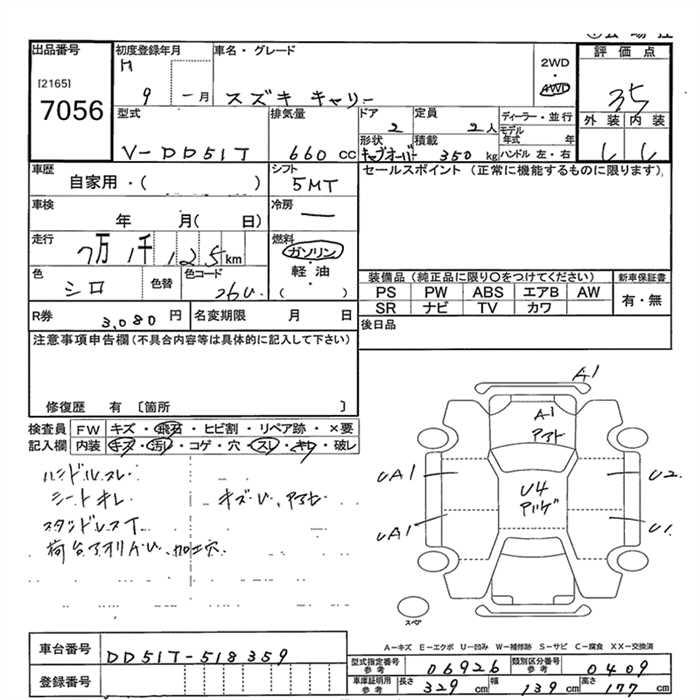 出品番号 初度登録年月 車名・グレード 2WD 評価点
[2165] H AWD
7056 9 一月 スズキ キャリー 35
型式 排気量 ドア 定員 ディーラー・並行 外装 内装
2 2人 モデル年式 年
V-DD51T 660cc 形状 キャブオーバー 積載 350kg ハンドル 左・右 し し
車歴 シフト セールスポイント (正常に機能するものに限ります)
自家用・( ) 5MT
車検 冷房
年 月( 日) ー
走行 燃料
7万 1千 125km ガソリン
色 色替 色コード 軽油
シロ 26U ・( )
装備品 (純正品に限り○をつけてください) 新車保証書
PS PW ABS エアB AW 有・無
SR ナビ TV カワ
R券 3,080円 名変期限 月 日 後日品
注意事項申告欄 (不具合内容等は具体的に記入して下さい)
修復歴 有 〔箇所 〕
検査員 FW キズ・飛石・ヒビ割・リペア跡・×要
記入欄 内装 キズ・汚レ・コゲ・穴・スレ・キレ・破レ
ハンドルスレ
シートキレ
荷台アオリ 加工穴
A1
A1
UA1 U2
U4
UA1 U1
スペア
A－キズ E－エクボ U－凹み W－補修跡 S－サビ C－腐食 XX－交換済
車台番号 DD51T-518359
型式指定番号 参考 06926 類別区分番号 参考 0409
登録番号
車庫証明用 参考 長さ 329cm 幅 139cm 高さ 177cm